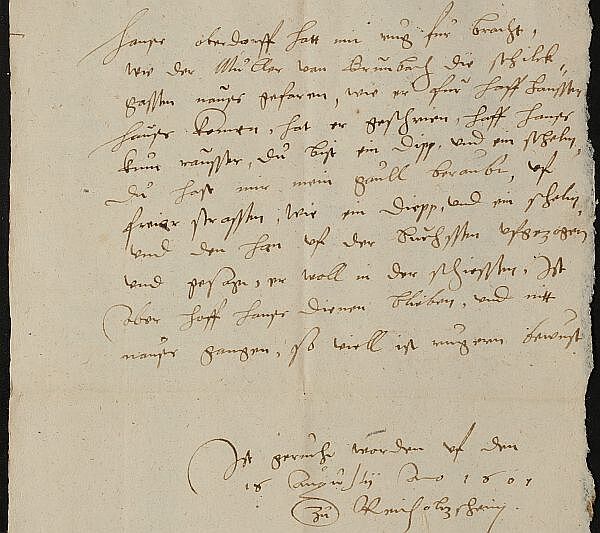 hanß oberdorff hatt mir rug für bracht,
wie der Müller van Brunbach die schilt
gassen nauß gefaren, wie er für hoff hanssen
hauß komen, hat er geschrien, hoff hanß
kum rausser, du bist ein diepp, und ein schelm,
du hast mir mein gaull beraubt, uf
freier strassen, wie ein diepp, und ein schelm,
und den han uf der buchssen ufgezogen
und gesagt, er woll in der schiessen, Ist
aber hoff hanß dienen blieben, und nitt
nauß gangen, so viell ist rugern bewust
Ist gerucht worden uf den
16 Augusty Ao 1601
zu Reicholtzheim